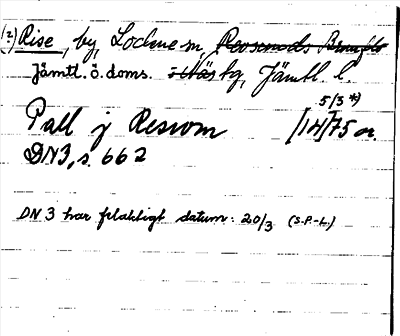 (?) Rise, by, Lockne sn, Revsunds Brunflo
Jämtl. ö. doms. o Näs tg, Jämtl. l.
5/3 *)
Pall j Resiom [14]75 or.
DN3, s. 662
DN 3 har felaktigt datum: 20/3 (S.P.-L.)